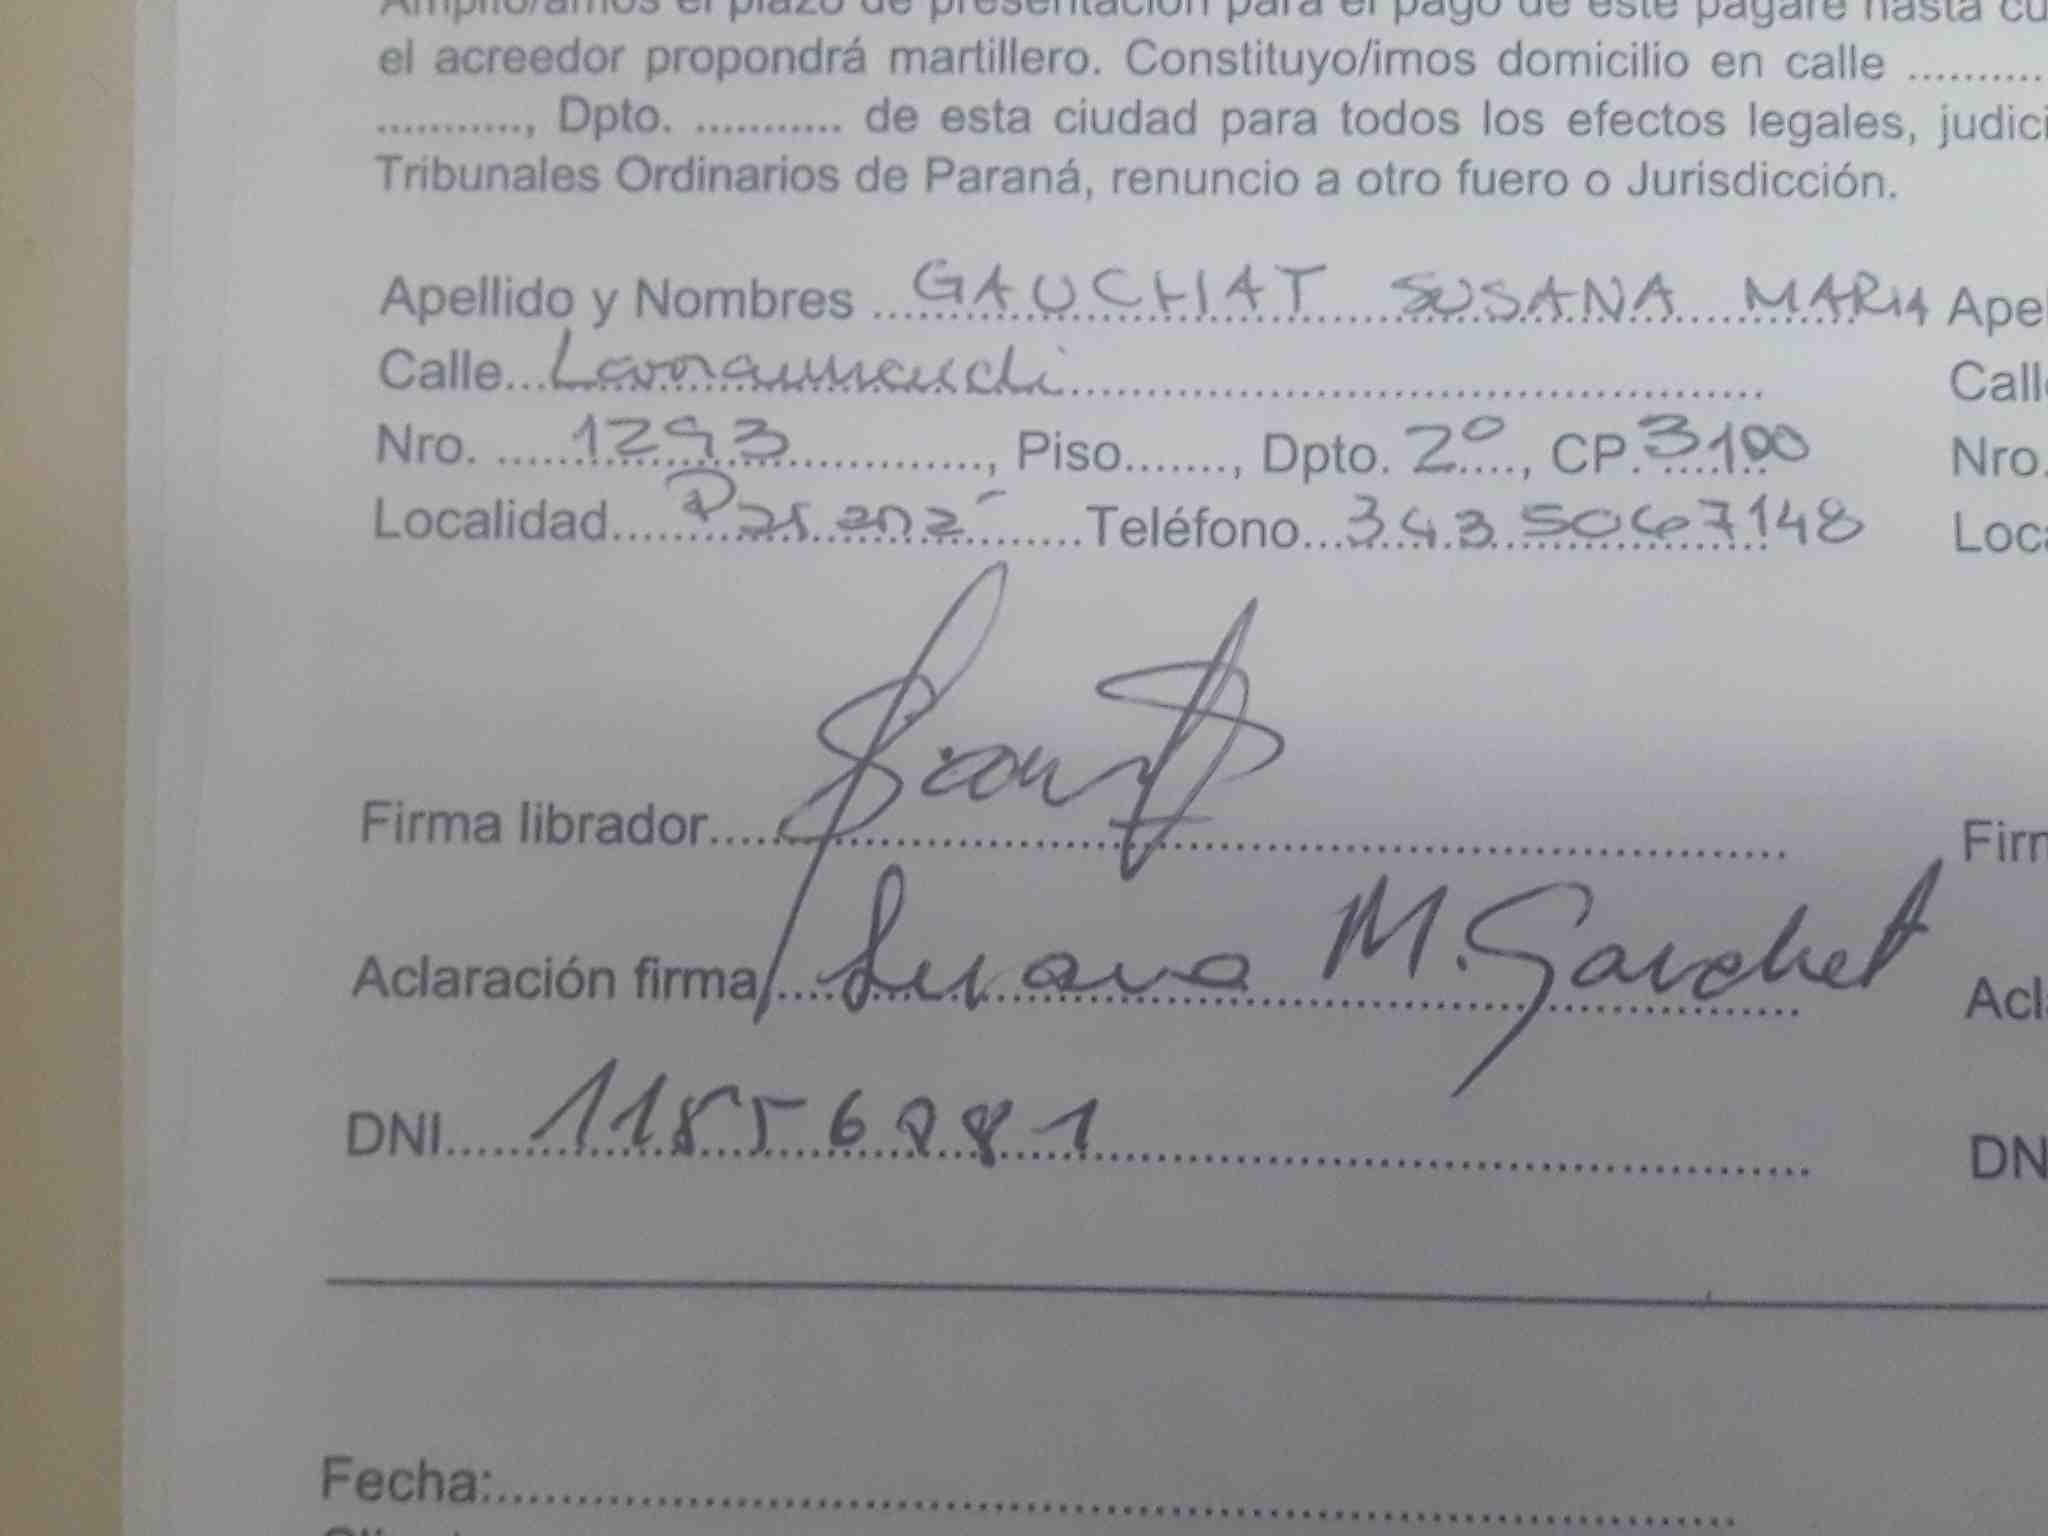 Amplío/amos el plazo de presentación para el pago de este pagaré hasta cu
el acreedor propondrá martillero. Constituyo/imos domicilio en calle ..........
..........., Dpto. ........... de esta ciudad para todos los efectos legales, judici
Tribunales Ordinarios de Paraná, renuncio a otro fuero o Jurisdicción.
Apellido y Nombres GAUCHAT SUSANA MARIA Ape
Calle Larramendi Calle
Nro. 1293, Piso......., Dpto. 2º, CP. 3100 Nro.
Localidad Paraná Teléfono 343 5067148 Loca
Firma librador Firm
Aclaración firma Susana M. Gauchat Acla
DNI 11856981 DN
Fecha: